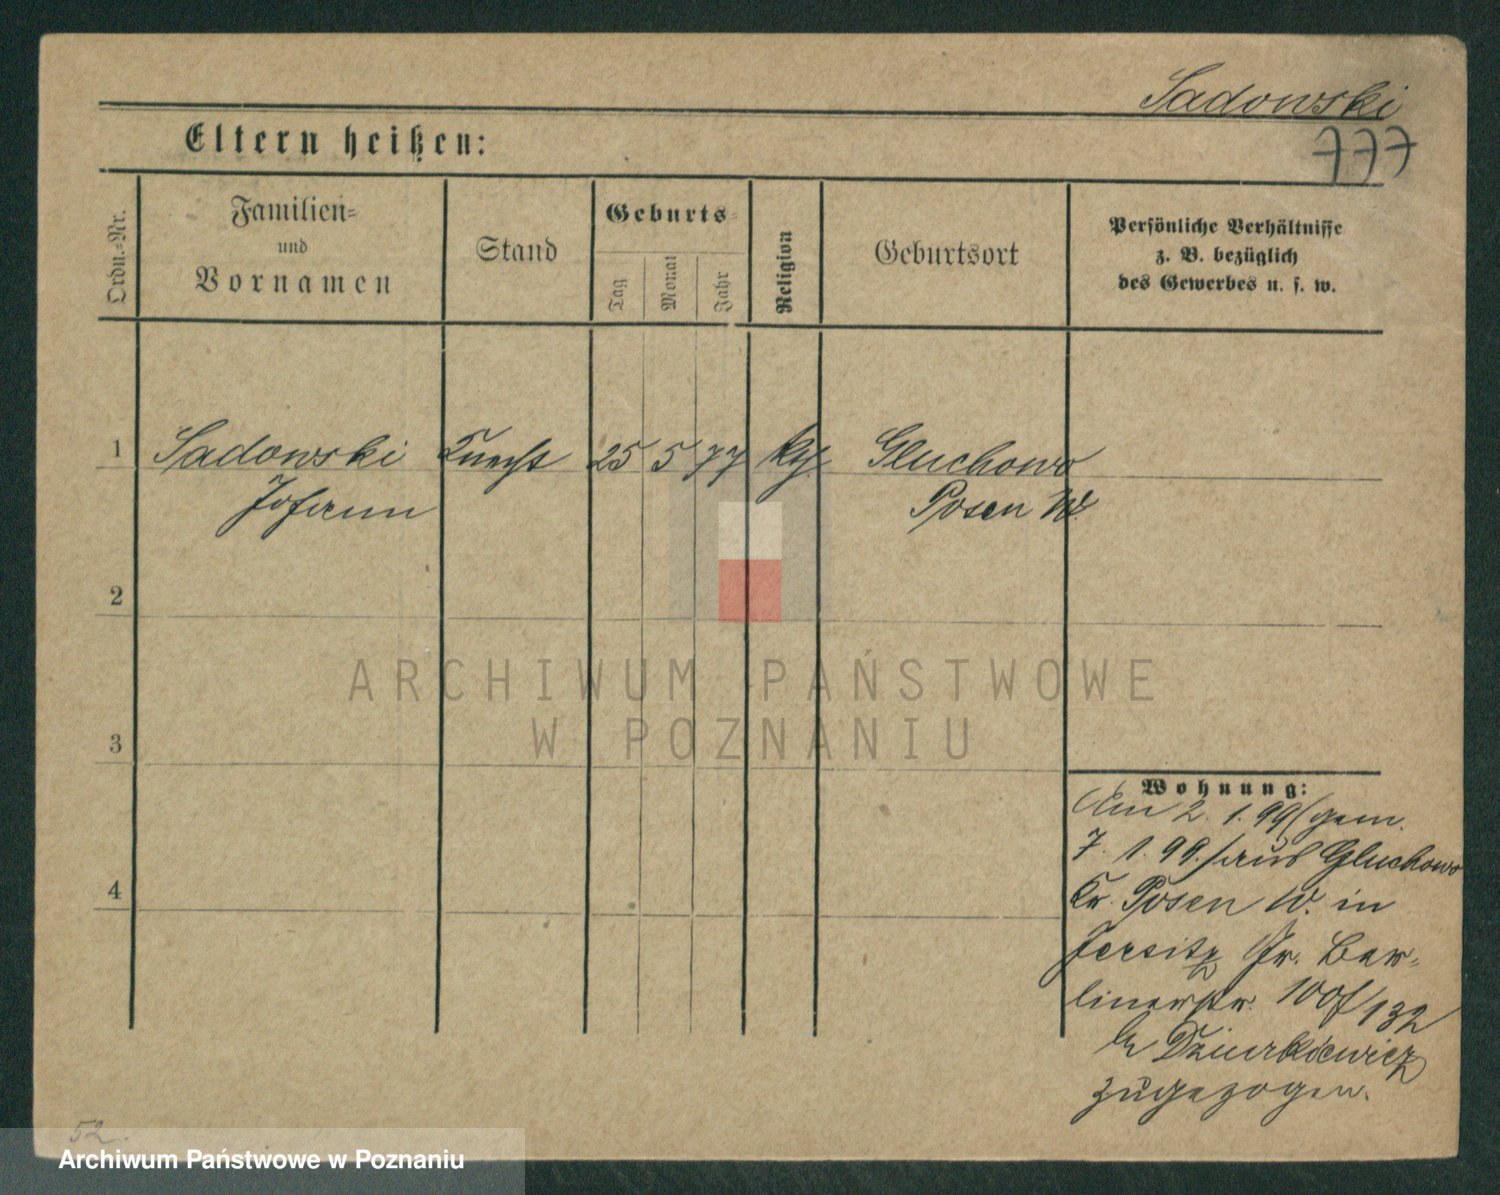 Sadowski
777
Eltern heißen:
Ordn.-Nr.
Familien-
und
Vornamen
Stand
Geburts-
Tag
Monat
Jahr
Religion
Geburtsort
Persönliche Verhältnisse
z. B. bezüglich
des Gewerbes u. s. w.
1 Sadowski Knecht 25 5 77 kth. Gluchowo
Johann Posen W.
2
ARCHIWUM PAŃSTWOWE
W POZNANIU
3
Wohnung:
Am 2. 1. 99 (gem.
7. 1. 99.) aus Gluchowo
4
Kr. Posen W. in
Jersitz Gr. Ber-
linerstr. 100f/132
b Dziurkiewicz
zugezogen.
52.
Archiwum Państwowe w Poznaniu